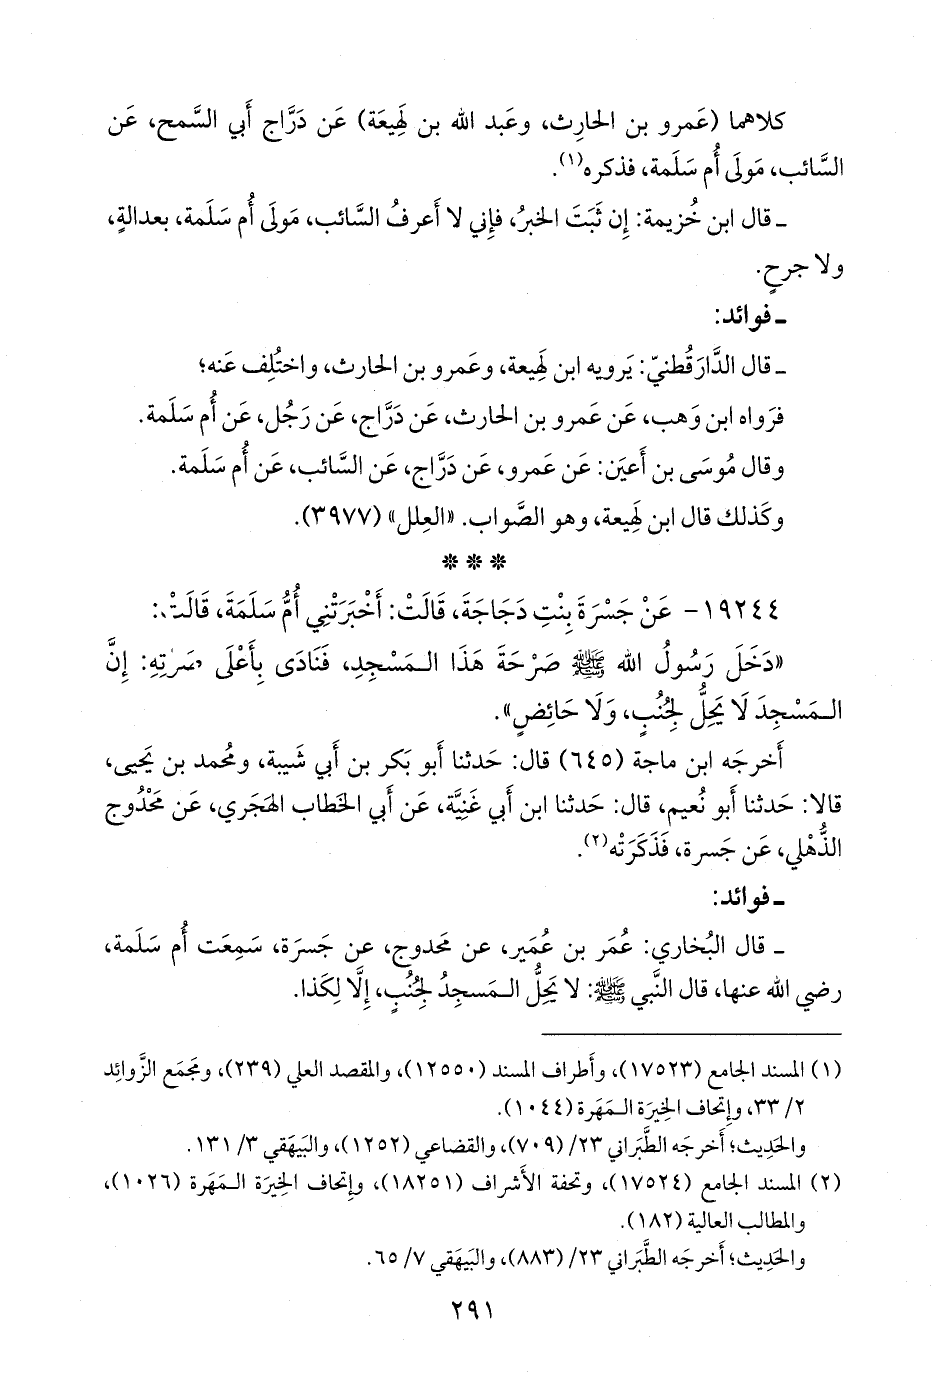 كلاهما (عَمرو بن الحارِث، وعَبد الله بن لَهِيعَة) عَن دَرَّاج أَبي السَّمح، عَن
السَّائب، مَولَى أُم سَلَمة، فذكره(١).
ـ قال ابن خُزيمة: إِن ثَبَتَ الخبرُ، فإِني لا أَعرفُ السَّائب، مَولَى أُم سَلَمة، بعدالةٍ،
ولا جرحٍ.
ـ فوائد:
ـ قال الدَّارَقُطنيّ: يَرويه ابن لَهِيعة، وعَمرو بن الحارث، واختُلِف عَنه؛
فرَواه ابن وَهب، عَن عَمرو بن الحارث، عَن دَرَّاج، عَن رَجُل، عَن أُم سَلَمة.
وقال مُوسَى بن أَعيَن: عَن عَمرو، عَن دَرَّاج، عَن السَّائب، عَن أُم سَلَمة.
وكَذلك قال ابن لَهِيعة، وهو الصَّواب. «العِلل» (٣٩٧٧).
❊ ❊ ❊
١٩٢٤٤- عَنْ جَسْرَةَ بِنْتِ دَجَاجَةَ، قَالَتْ: أَخْبَرَتْنِي أُمُّ سَلَمَةَ، قَالَتْ:
«دَخَلَ رَسُولُ الله ﷺ صَرْحَةَ هَذَا الـمَسْجِدِ، فَنَادَى بِأَعْلَى صَوْتِهِ: إِنَّ
الـمَسْجِدَ لَا يَحِلُّ لِجُنُبٍ، وَلَا حَائِضٍ».
أَخرجَه ابن ماجة (٦٤٥) قال: حَدثنا أَبو بَكر بن أَبي شَيبة، ومُحمد بن يَحيى،
قالا: حَدثنا أَبو نُعيم، قال: حَدثنا ابن أَبي غَنِيَّة، عَن أَبي الخَطاب الهَجَري، عَن مَحْدُوج
الذُّهْلي، عَن جَسرة، فَذَكَرَتْه(٢).
ـ فوائد:
ـ قال البُخاري: عُمَر بن عُمَير، عن مَحدوج، عن جَسرَة، سَمِعَت أُم سَلَمة،
رضي الله عنها، قال النَّبي ﷺ: لا يَحِلُّ الـمَسجِدُ لِجُنُبٍ، إِلَّا لِكَذا.
(١) المسند الجامع (١٧٥٢٣)، وأَطراف المسند (١٢٥٥٠)، والمقصد العلي (٢٣٩)، ومَجمَع الزَّوائِد
٢/ ٣٣، وإِتحاف الخِيرَة الـمَهَرة (١٠٤٤).
والحَدِيث؛ أَخرجَه الطَّبَراني ٢٣/ (٧٠٩)، والقضاعي (١٢٥٢)، والبَيهَقي ٣/ ١٣١.
(٢) المسند الجامع (١٧٥٢٤)، وتحفة الأَشراف (١٨٢٥١)، وإِتحاف الخِيرَة الـمَهَرة (١٠٢٦)،
والمطالب العالية (١٨٢).
والحَدِيث؛ أَخرجَه الطَّبَراني ٢٣/ (٨٨٣)، والبَيهَقي ٧/ ٦٥.
٢٩١